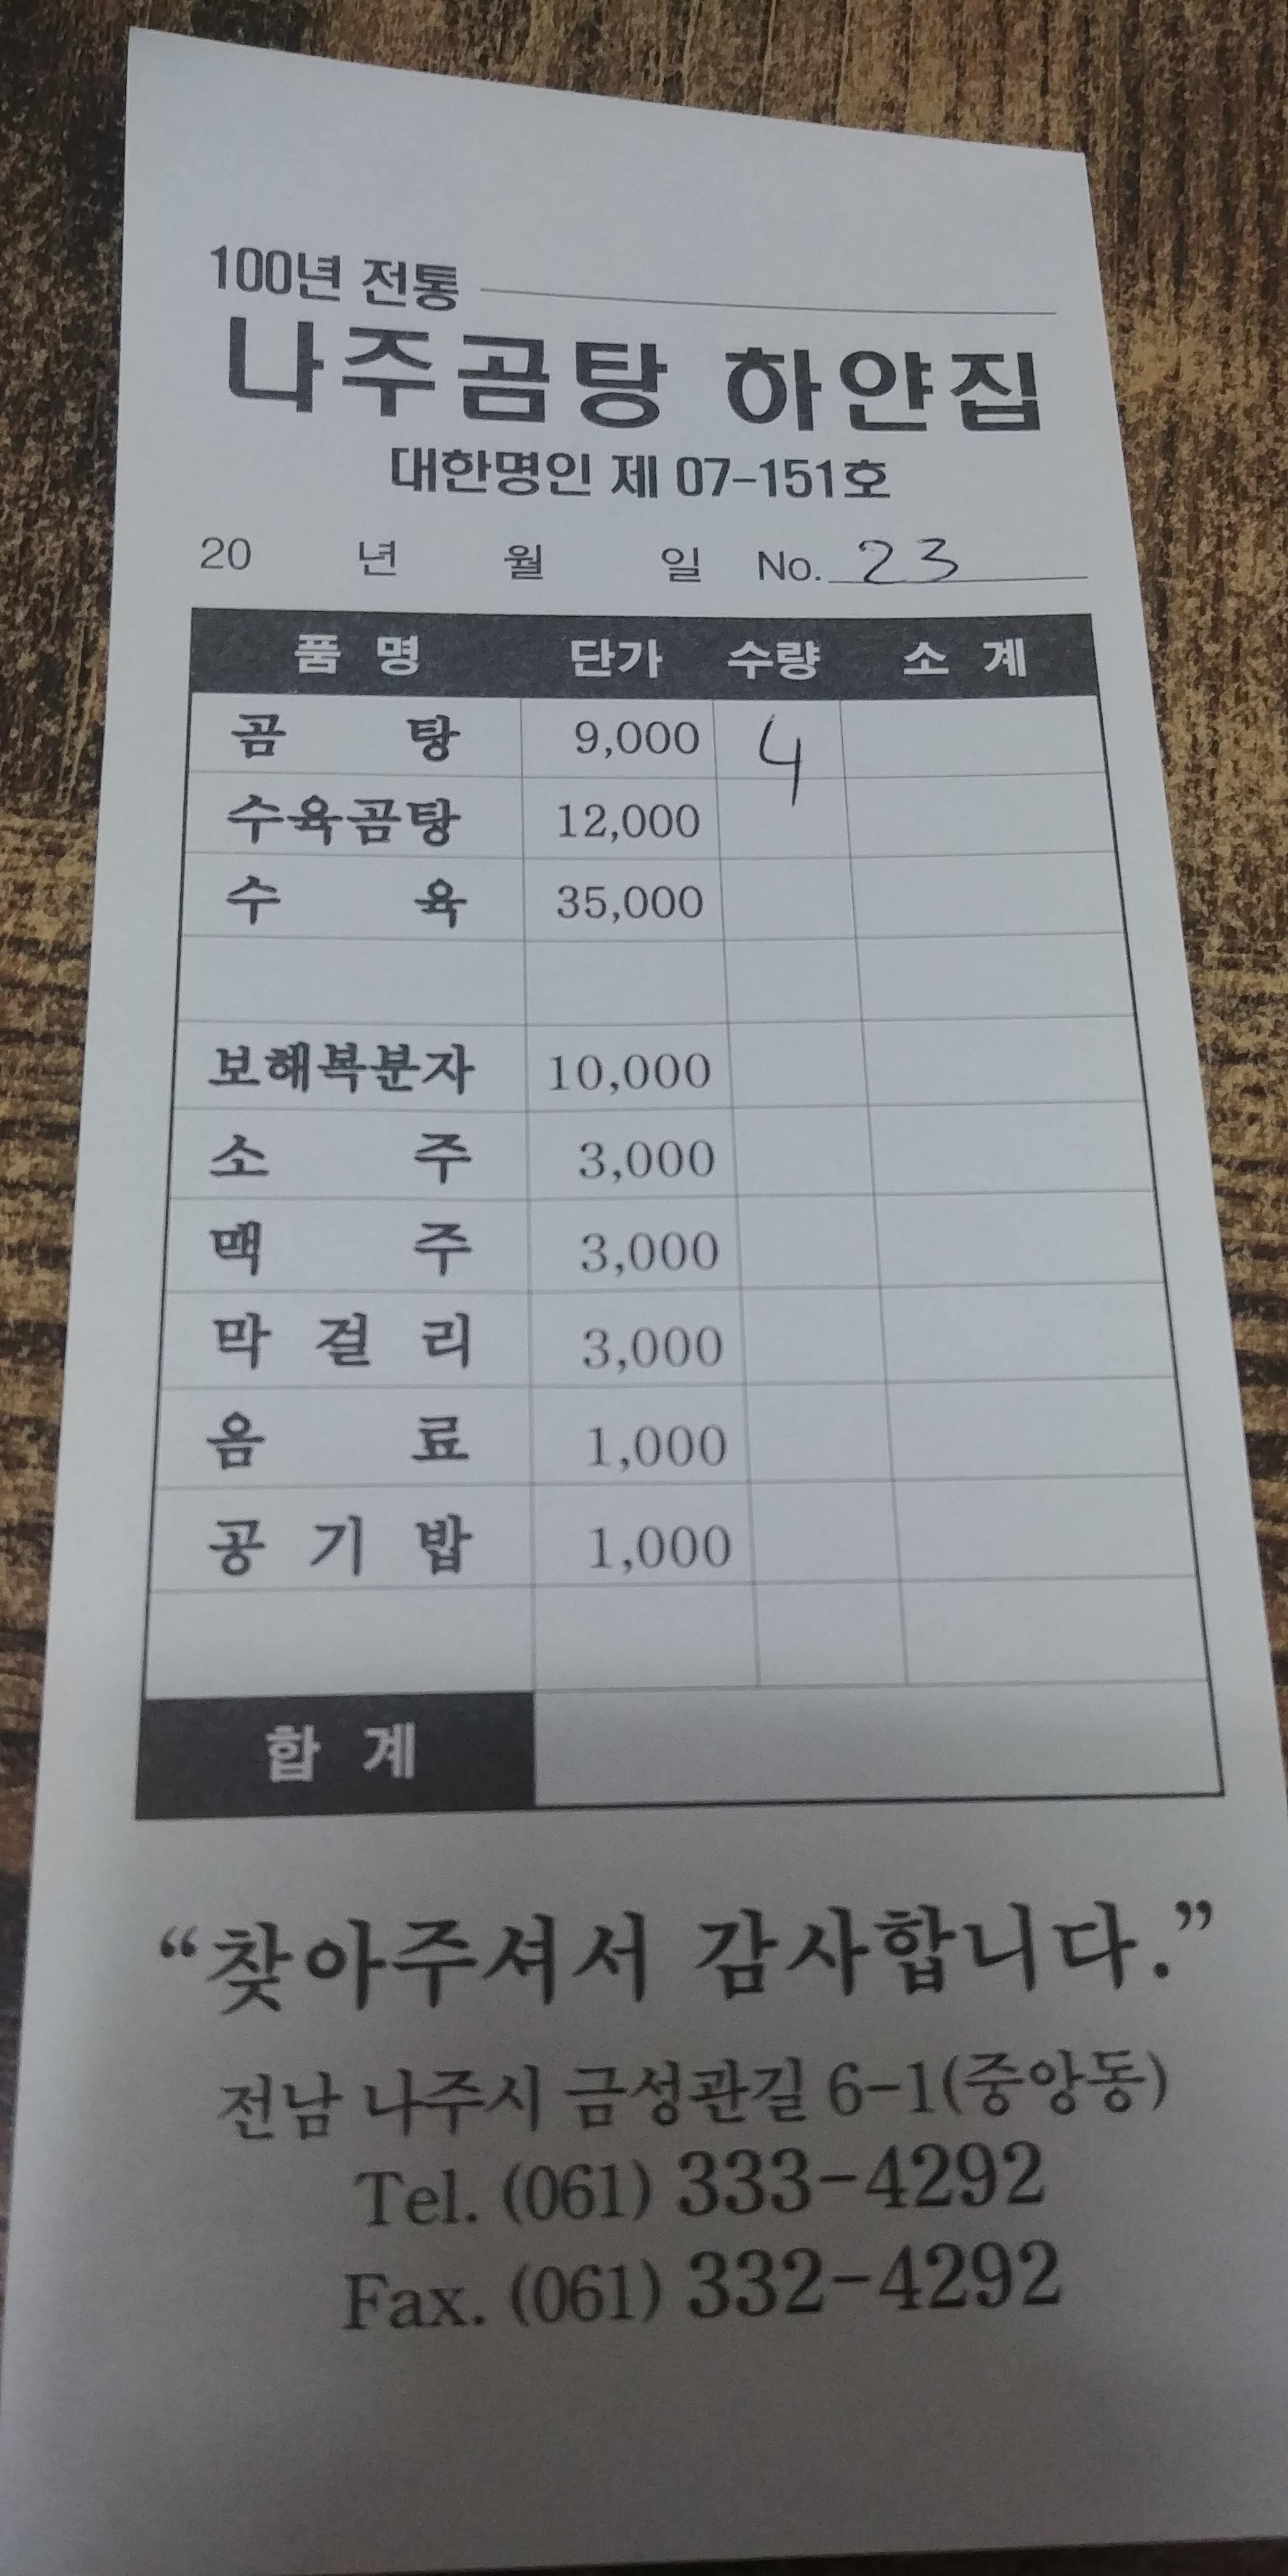 100년 전통
나주곰탕 하얀집
대한명인 제 07-151호
20 년 월 일 No. 23
품 명 단가 수량 소 계
곰 탕 9,000 4
수육곰탕 12,000
수 육 35,000
보해복분자 10,000
소 주 3,000
맥 주 3,000
막 걸 리 3,000
음 료 1,000
공 기 밥 1,000
합 계
“찾아주셔서 감사합니다.”
전남 나주시 금성관길 6-1(중앙동)
Tel. (061) 333-4292
Fax. (061) 332-4292